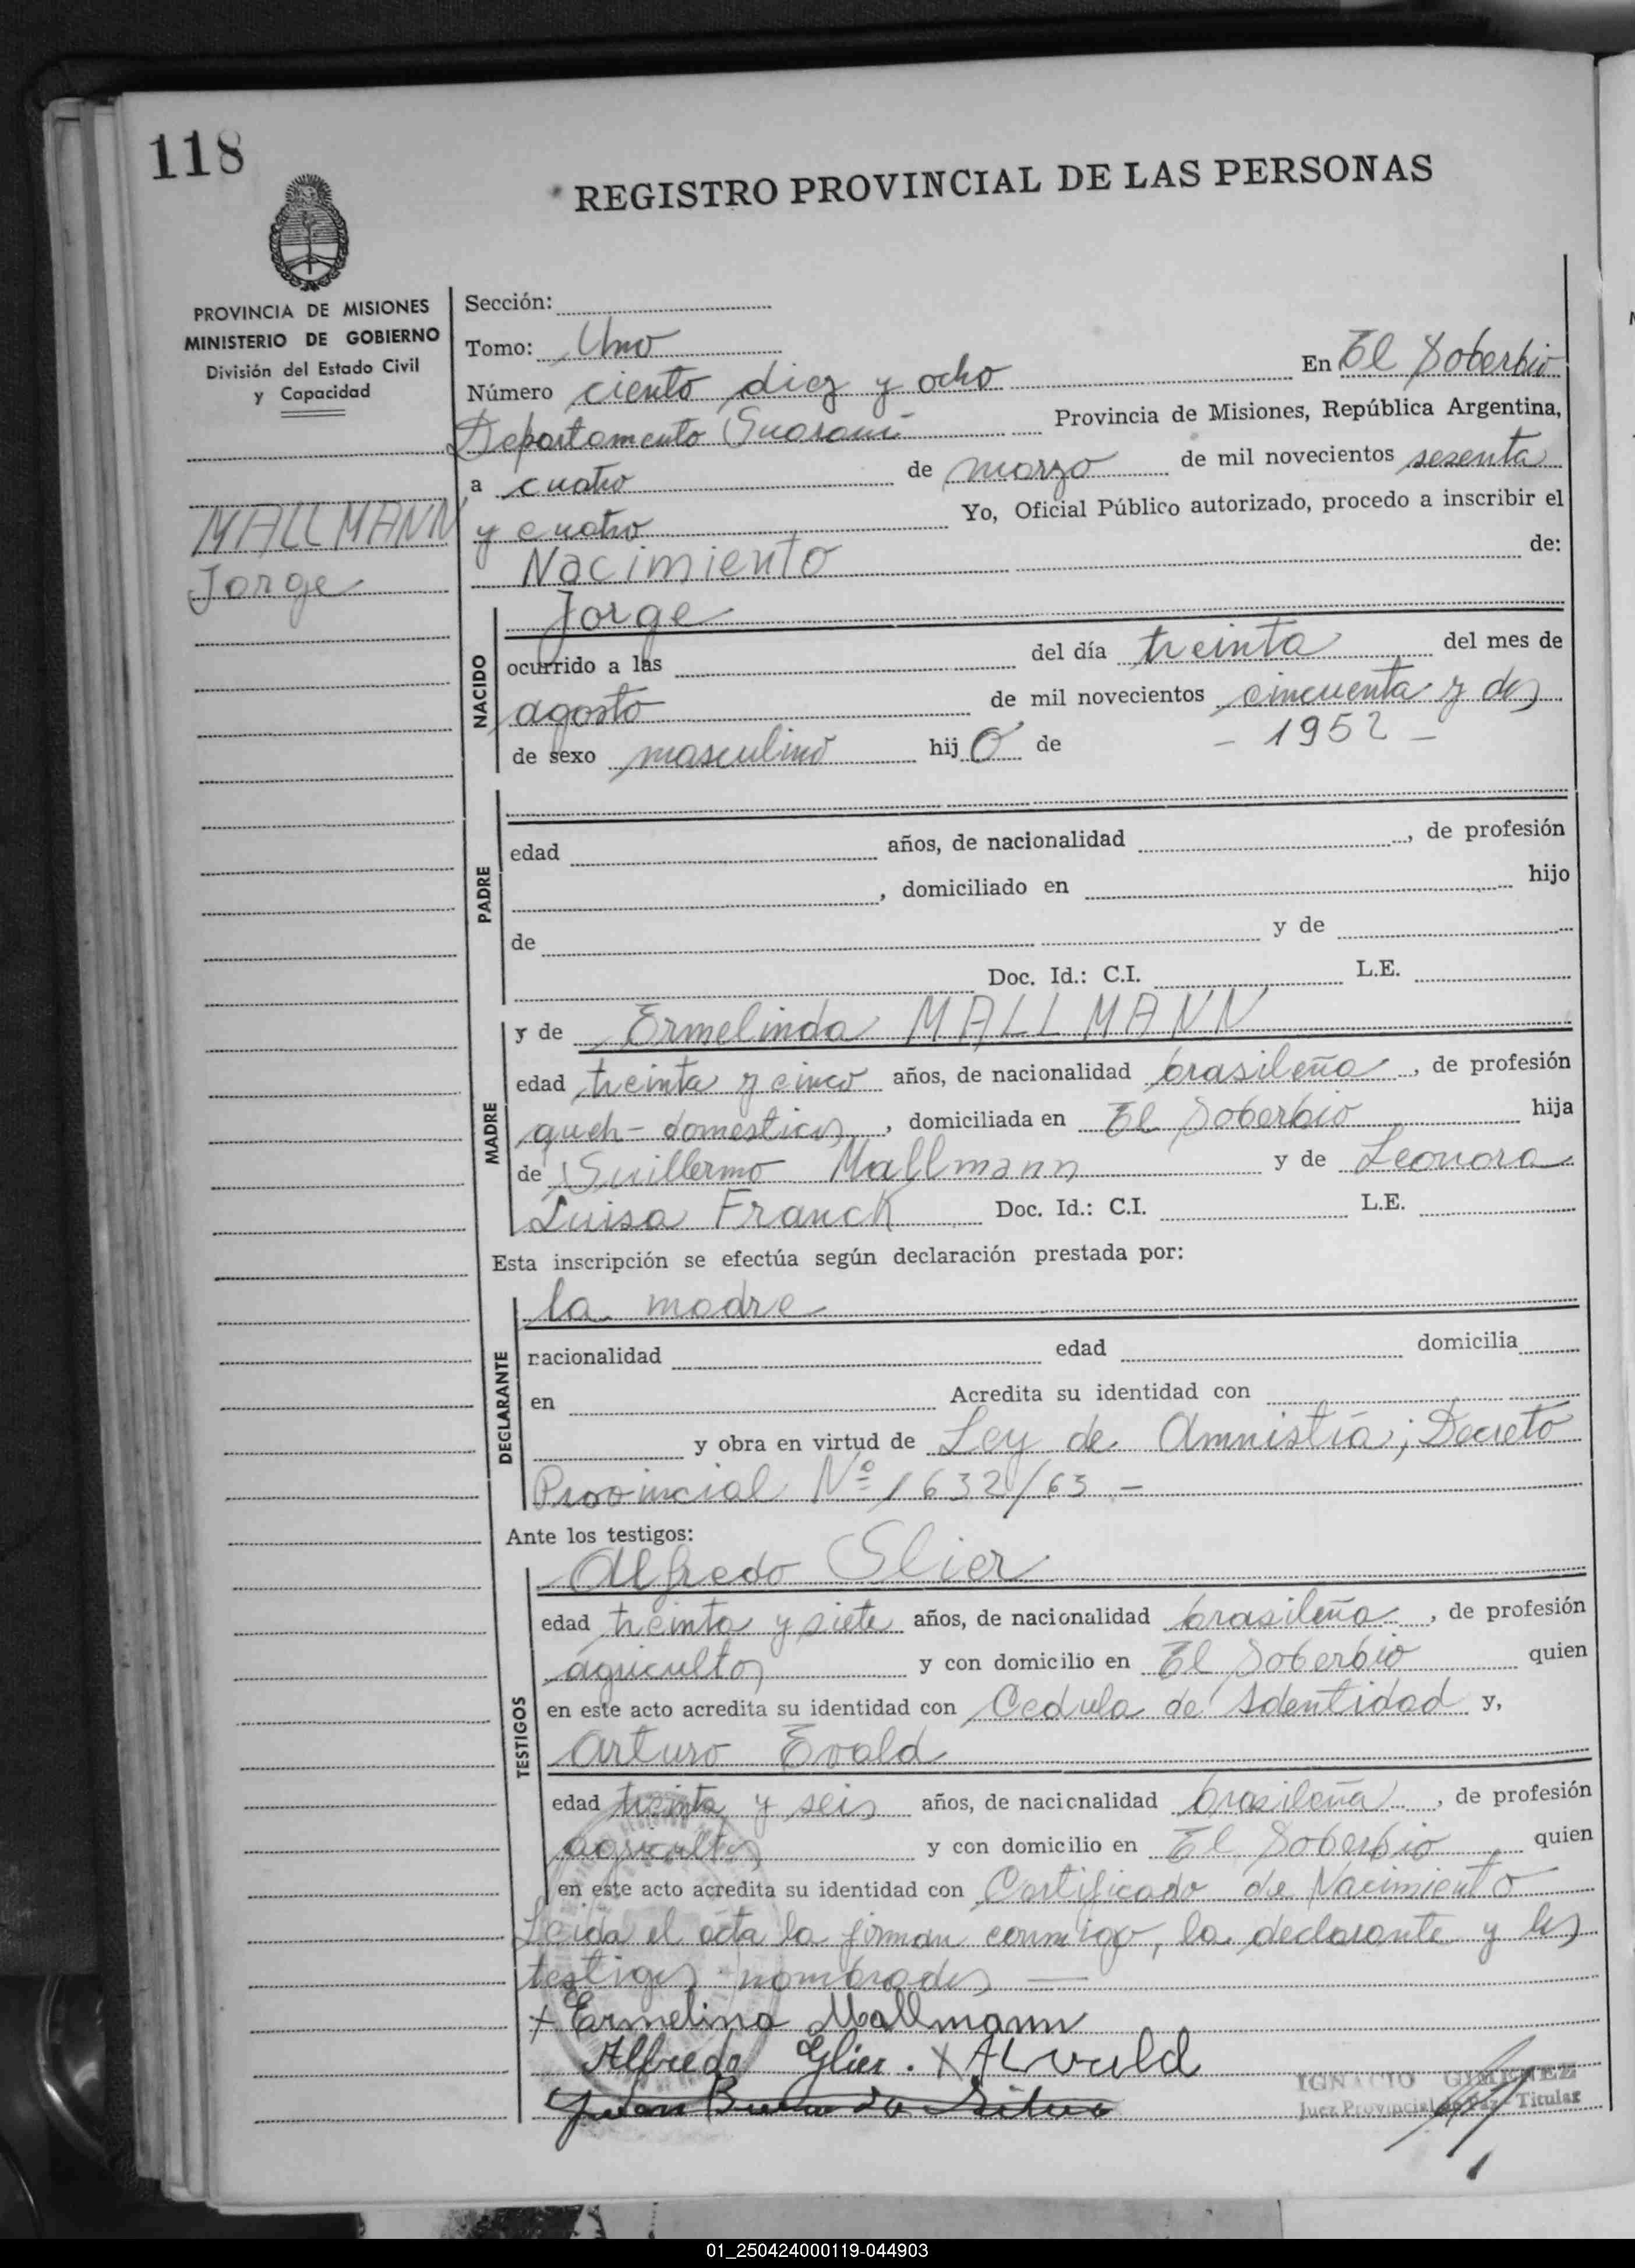 118
REGISTRO PROVINCIAL DE LAS PERSONAS
PROVINCIA DE MISIONES
MINISTERIO DE GOBIERNO
División del Estado Civil
y Capacidad
MALLMANN
Jorge
Sección:
Tomo: Uno
Número ciento diez y ocho En El Soberbio
Departamento Guaraní Provincia de Misiones, República Argentina,
a cuatro de marzo de mil novecientos sesenta
y cuatro Yo, Oficial Público autorizado, procedo a inscribir el
Nacimiento de:
NACIDO
Jorge
ocurrido a las del día treinta del mes de
agosto de mil novecientos cincuenta y dos
de sexo masculino hijo de - 1952 -
PADRE
edad años, de nacionalidad , de profesión
, domiciliado en hijo
de y de
Doc. Id.: C.I. L.E.
MADRE
y de Ermelinda MALLMANN
edad treinta y cinco años, de nacionalidad brasileña , de profesión
queh-domesticos , domiciliada en El Soberbio hija
de Guillermo Mallmann y de Leonora
Luisa Franck Doc. Id.: C.I. L.E.
Esta inscripción se efectúa según declaración prestada por:
DECLARANTE
la madre
nacionalidad edad domicilia
en Acredita su identidad con
y obra en virtud de Ley de Amnistía; Decreto
Provincial Nº 1632/63 -
Ante los testigos:
TESTIGOS
Alfredo Glier
edad treinta y siete años, de nacionalidad brasileña , de profesión
agricultor y con domicilio en El Soberbio quien
en este acto acredita su identidad con Cedula de Identidad y,
Arturo Evald
edad treinta y seis años, de nacionalidad brasileña , de profesión
agricultor y con domicilio en El Soberbio quien
en este acto acredita su identidad con Certificado de Nacimiento
Leida el acta la firman conmigo, la declarante y los
testigos nombrados —
x Ermelina Mallmann
Alfredo Glier. x A
IGNACIO GIMENEZ
Juez Provincial de Paz - Titular
01_250424000119-044903